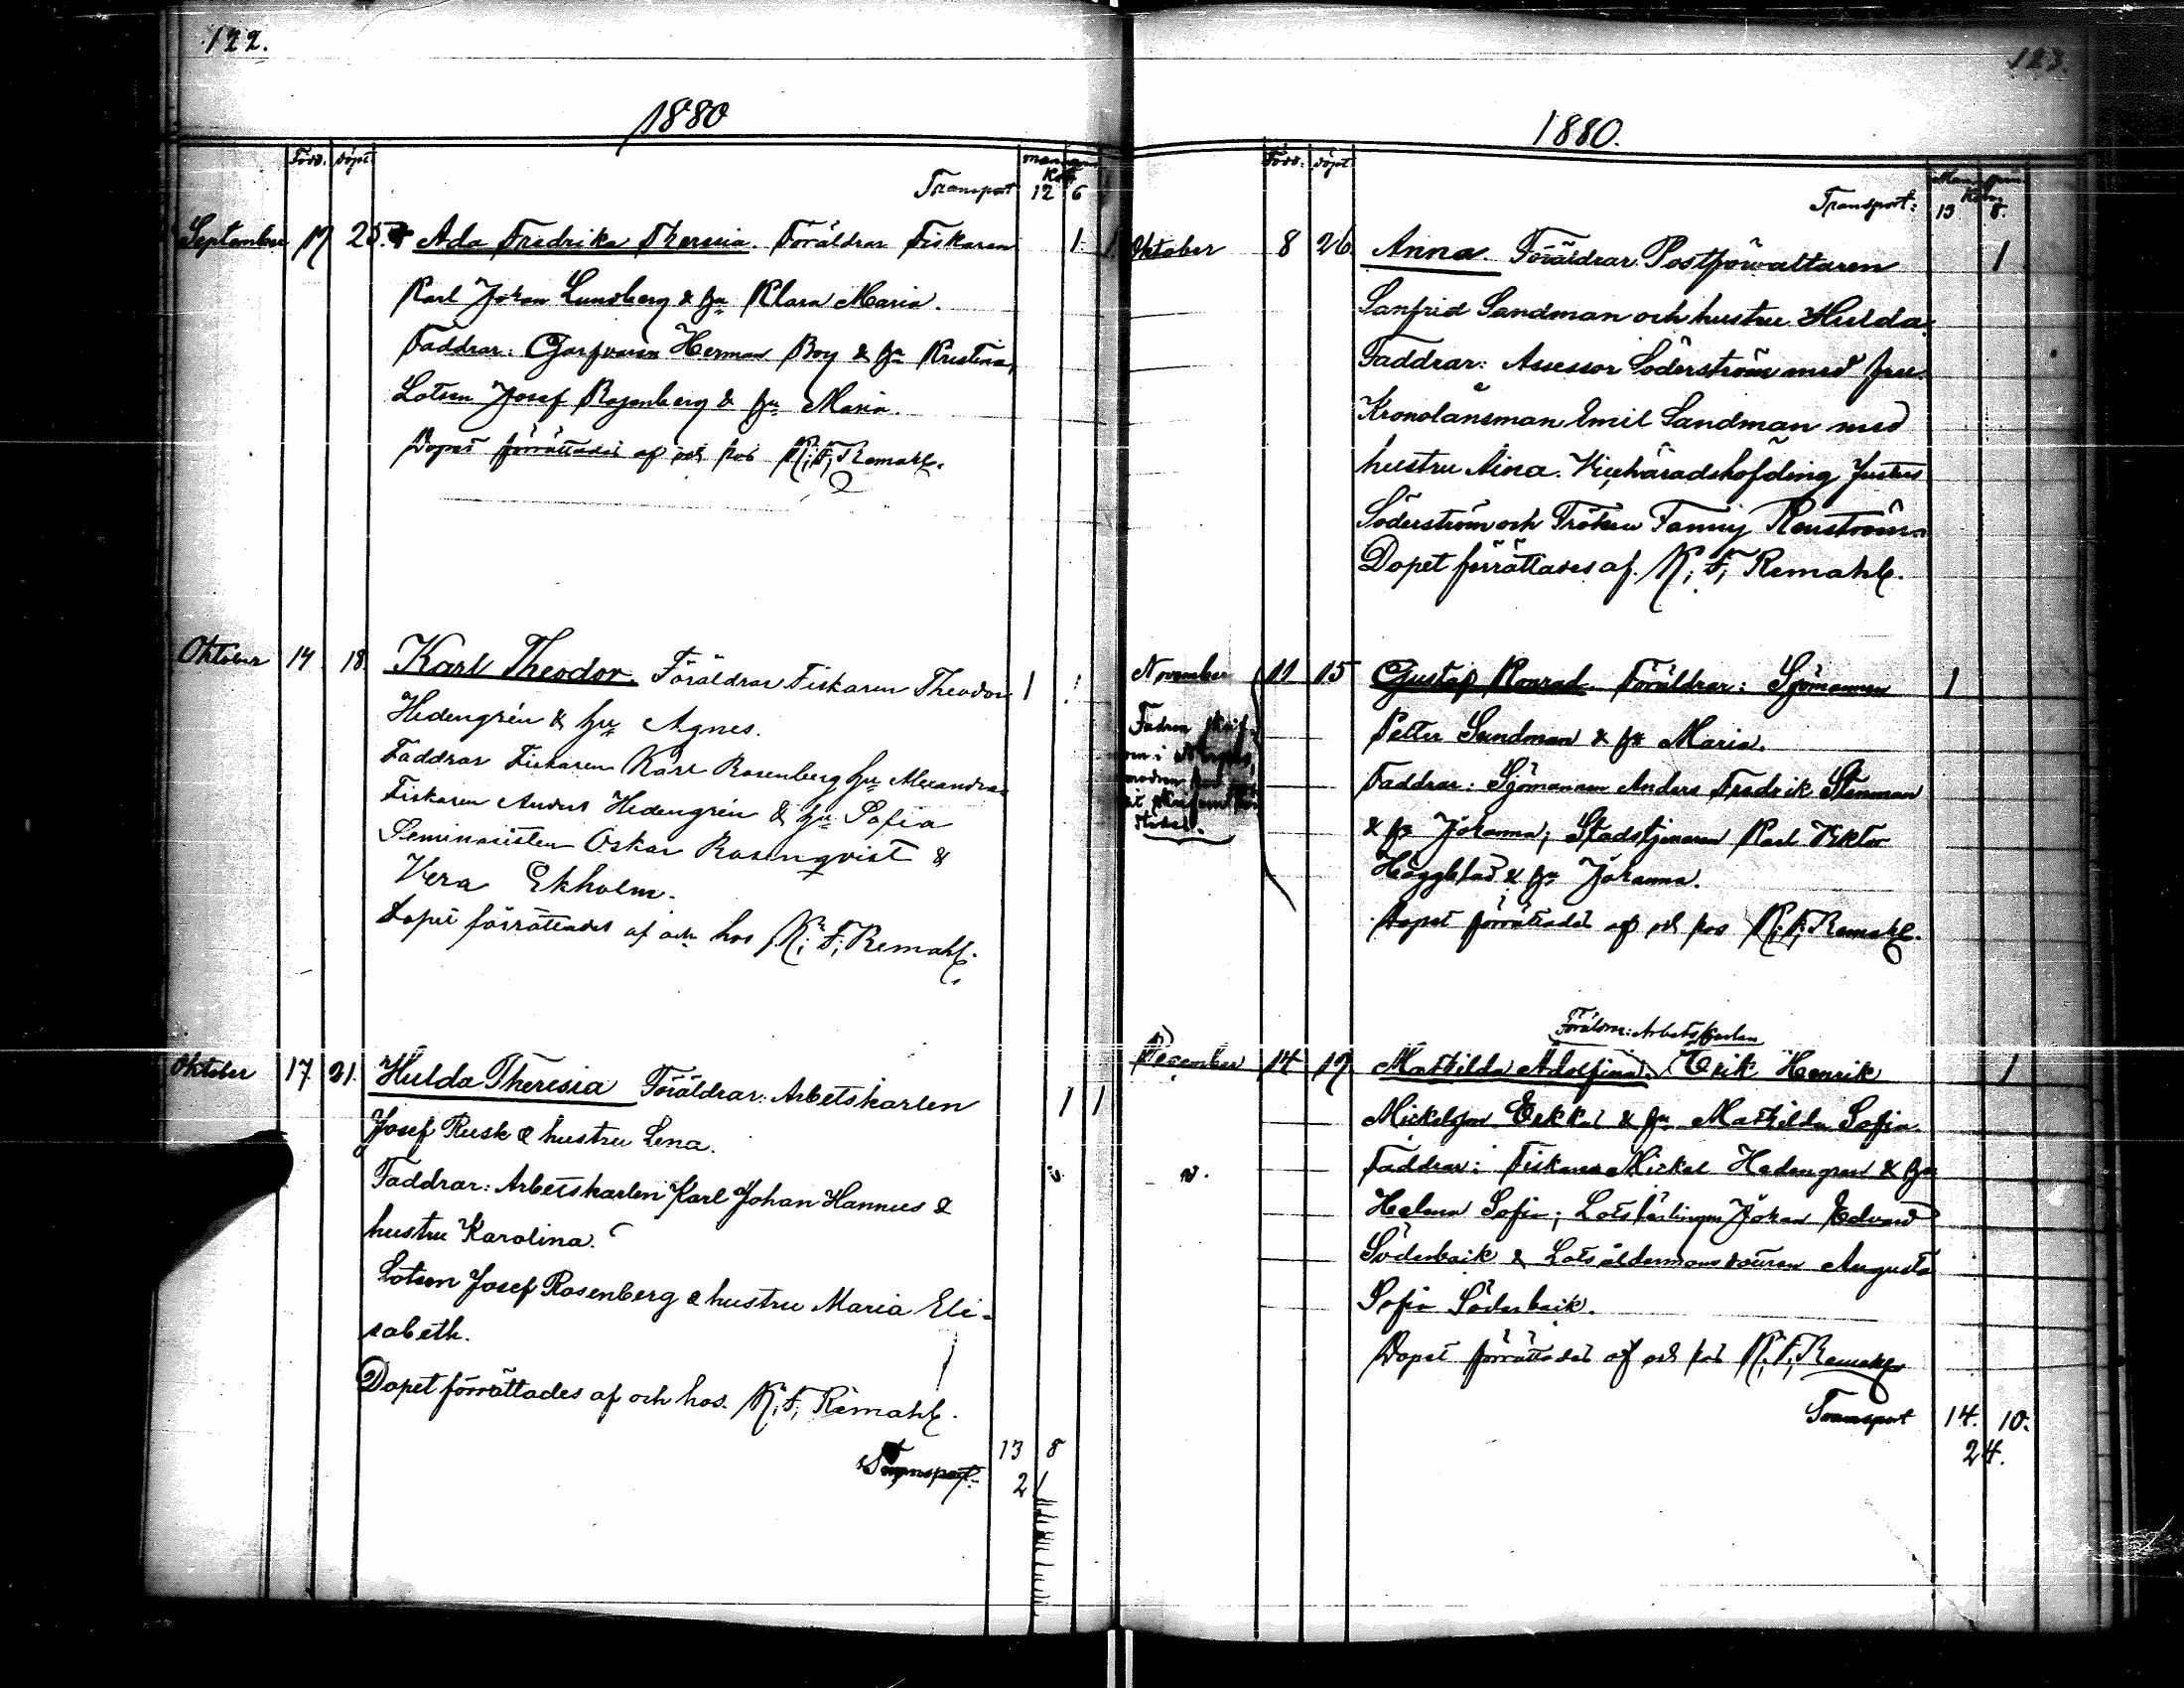 122.
1880
Född. Döpt man qvin
Kön
Transport 12 6
September 17 25. Ada Fredrika Theresia. Föräldrar Fiskaren 1. 1
Karl Johan Lundberg & hu Klara Maria.
Faddrar: Garfvaren Herman Boy & hu Kristina,
Lotsen Josef Rosenberg & hu Maria.
Dopet förrättades af och hos K. F. Remahl.
Oktober 14 18. Karl Theodor. Föräldrar Fiskaren Theodor 1
Hedengrén & hu Agnes.
Faddrar Fiskaren Karl Rosenberg hu Alexandra
Fiskaren Anders Hedengrén & hu Sofia
Seminaristen Oskar Rosenqvist &
Vera Ekholm.
Dopet förrättades af och hos K. F. Remahl.
Oktober 17 21. Hulda Theresia Föräldrar: Arbetskarlen 1 1
Josef Rusk & hustru Lena.
Faddrar: Arbetskarlen Karl Johan Hannus &
hustru Karolina.
Lotsen Josef Rosenberg & hustru Maria Eli-
sabeth.
Dopet förrättades af och hos. K. F. Remahl.
Transport 13 8
21
123.
1880.
Född. Döpt Man qvin
Kön
Transport: 13 8.
Oktober 8 26. Anna. Föräldrar: Postförvaltaren 1
Sanfrid Sandman och hustru Hulda.
Faddrar: Assessor Söderström med fru.
Kronolänsman Emil Sandman med
hustru Aina. Vicehäradshöfding Justus
Söderström och Fröken Fanny Renström.
Dopet förrättades af. K. F. Remahl.
November 11 15 Gustaf Konrad. Föräldrar: Sjömannen 1
Fadren
Petter Sundman & hu Maria.
Faddrar: Sjömannen Anders Fredrik Stenman
& hu Johanna; Stadstjenaren Karl Viktor
Häggblad & hu Johanna.
Dopet förrättades af och hos K. F. Remahl.
Föräldrar: Arbetskarlen
December 14 19 Mathilda Adolfina. Erik Henrik 1
Mickelsson Erkkilä & hu Mathilda Sofia.
Faddrar: Fiskaren Mickel Hedengren & hu
Helena Sofia; Lotslärlingen Johan Edvard
Söderback & Lotsåldermansdottren Augusta
Sofia Söderback.
Dopet förrättades af och hos K. F. Remahl
Transport 14. 10.
24.